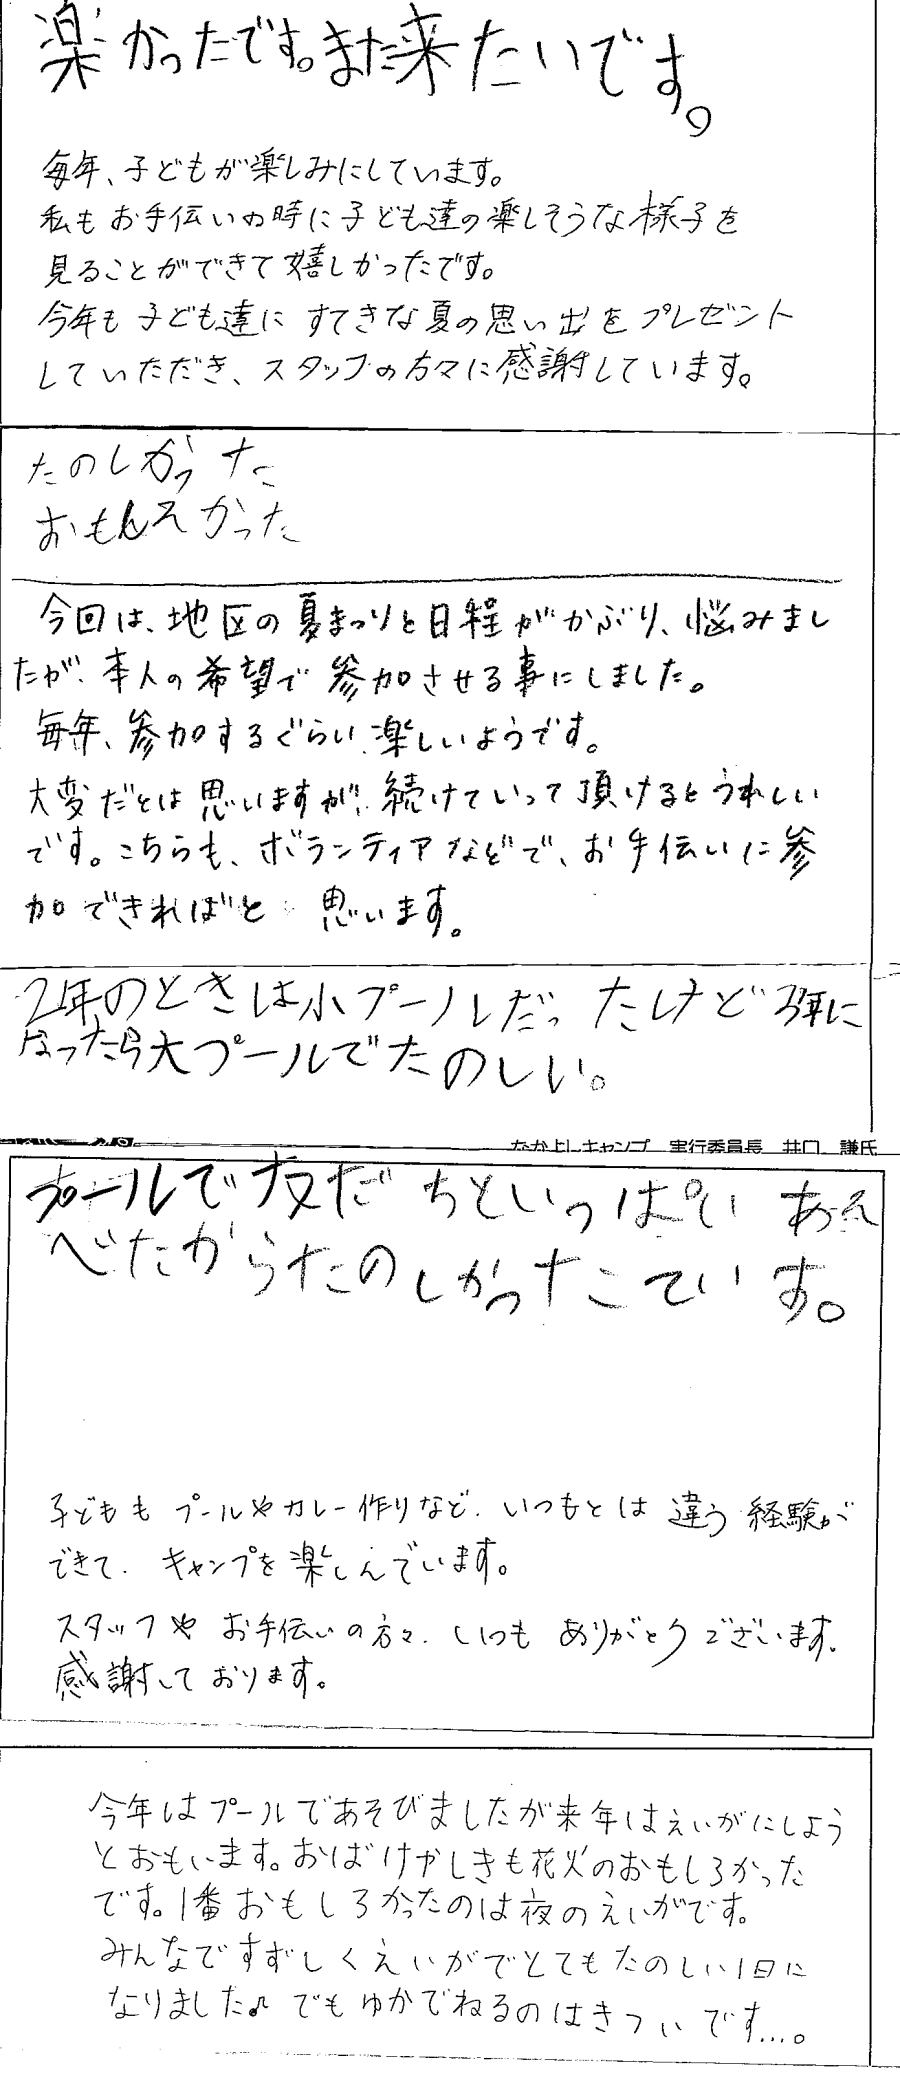 楽かったです。また来たいです。
毎年、子どもが楽しみにしています。
私もお手伝いの時に子ども達の楽しそうな様子を
見ることができて嬉しかったです。
今年も子ども達にすてきな夏の思い出をプレゼント
していただき、スタッフの方々に感謝しています。
たのしかった
おもしろかった
今回は、地区の夏まつりと日程がかぶり、悩みまし
たが、本人の希望で参加させる事にしました。
毎年、参加するぐらい、楽しいようです。
大変だとは思いますが、続けていって頂けるとうれしい
です。こちらも、ボランティアなどで、お手伝いに参
加できればと思います。
2年のときは小プールだったけど3年に
なったら大プールでたのしい。
なかよしキャンプ 実行委員長 井口 謙氏
プールで友だちといっぱいあそ
べたからたのしかったこていす。
子どももプールやカレー作りなど、いつもとは違う経験が
できて、キャンプを楽しんでいます。
スタッフやお手伝いの方々、いつもありがとうございます。
感謝しております。
今年はプールであそびましたが来年はえいがにしよう
とおもいます。おばけやしきも花火のおもしろかった
です。1番おもしろかったのは夜のえいがです。
みんなですずしくえいがでとてもたのしい1日に
なりました♪でもゆかでねるのはきついです...。